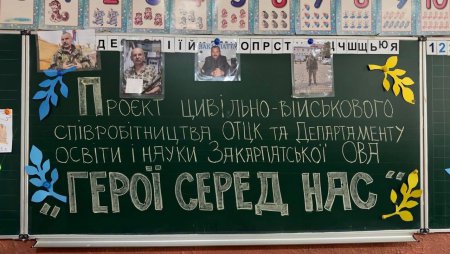 Проєкт цивільно-військового
співробітництва ОТЦК та Департаменту
освіти і науки Закарпатської ОВА
"ГЕРОЇ СЕРЕД НАС"